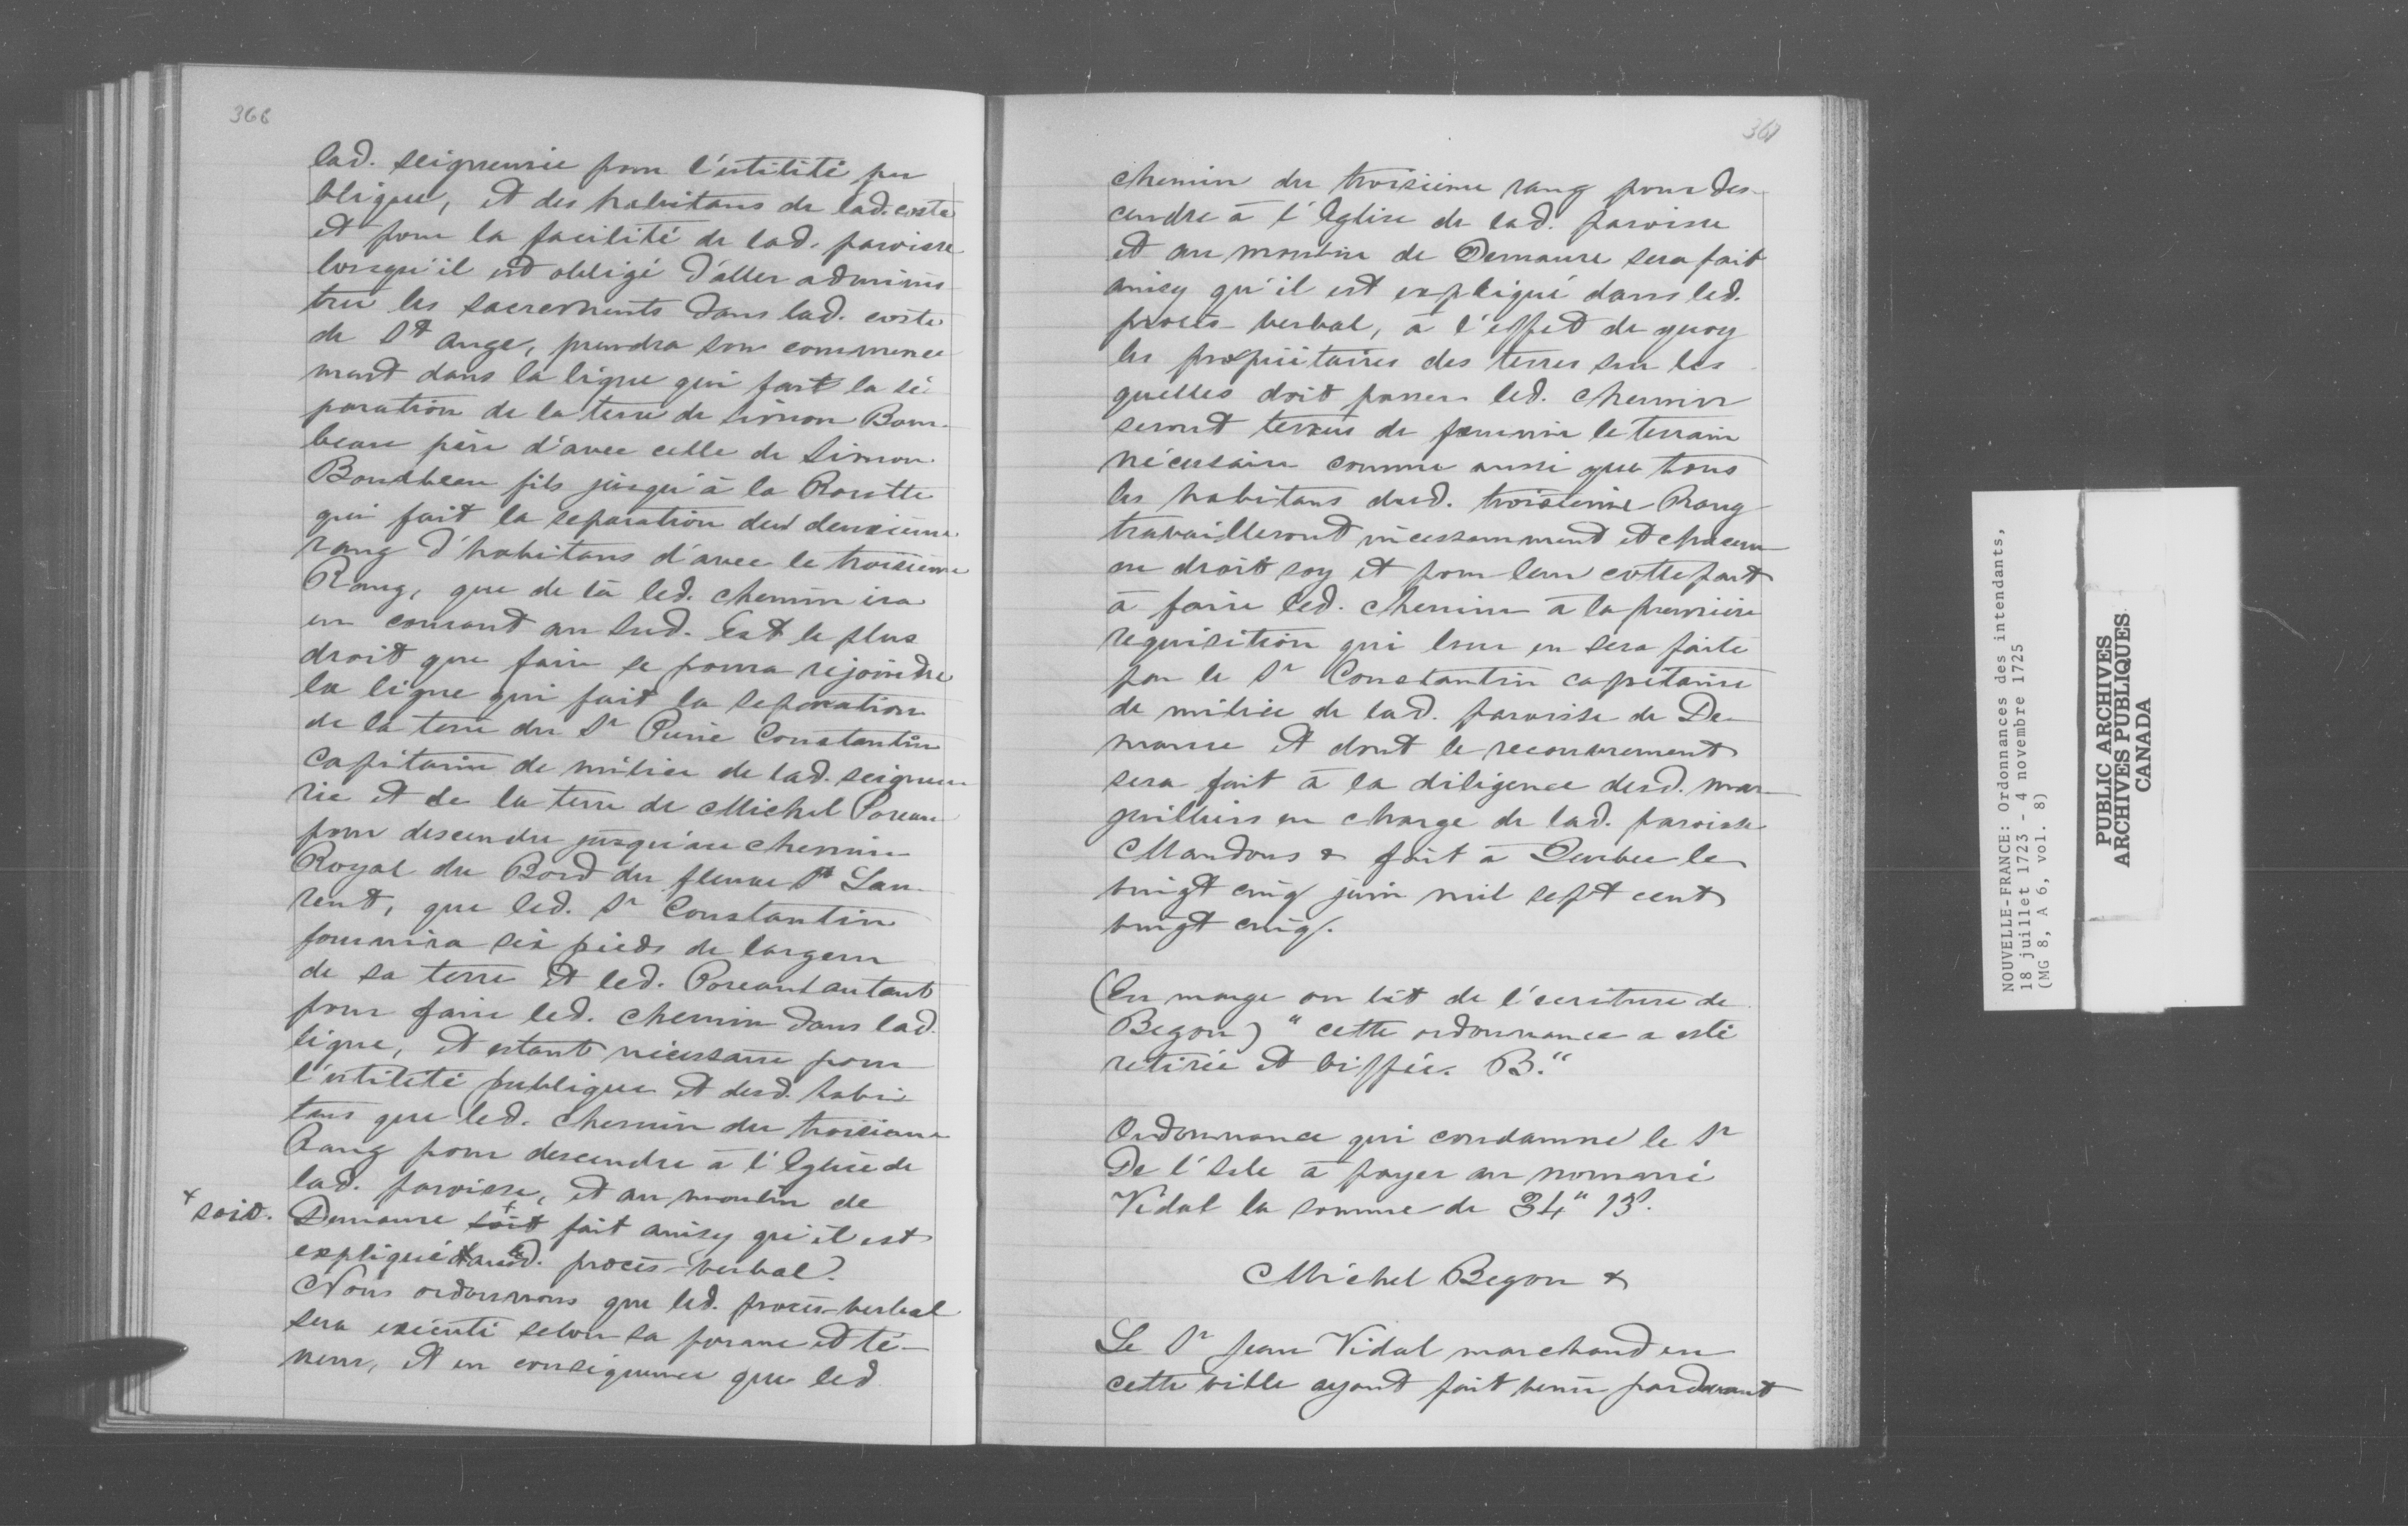 366
lad. seigneurie pour l'utilité pu
blique, et des habitans de lad. coste
et pour la facilité de lad. paroisse
lorsqu'il est obligé d'aller adminis
trer les sacrements dans lad. coste
de St Ange, prendra son commence
ment dans la ligne qui fait la sé-
paration de la terre de Simon Bour-
beau père d'avec celle de Simon
Bourbeau fils jusqu'à la Routte
qui fait la separation du deuxieme
rang d'habitans d'avec le troisieme
Rang, que de là led. chemin ira
en courant au Sud. Est le plus
droit que faire se poura rejoindre
la ligne qui fait la separation
de la terre du Sr Pierre Constantin
capitaine de milice de lad. seigneu
rie et de la terre de Michel Poreau
pour descendre jusqu'au chemin
Royal du Bord du fleuve St Lau-
rent, que led. Sr Constantin
fournira six pieds de largeur
de sa terre et led. Poreau autant
pour faire led. chemin dans lad.
ligne, et estant nécessaire pour
l'utilité publique et desd. habi
tans que led. chemin du troisieme
Rang pour descendre à l'Eglise de
lad. paroisse, et au moulin de
x soit. Demaure soit fait ainsy qu'il est
expliqué aud. procès-verbal.
Nous ordonnons que led. procès-verbal
sera exécuté selon sa forme et te-
neur, et en consequence que led
367
chemin du troisieme rang pour des-
cendre à l'Eglise de lad. paroisse
et au moulin de Demaure sera fait
ainsy qu'il est expliqué dans led.
procès-verbal, à l'effet de quoy
les propriétaires des terres sur les
quelles doit passer led. chemin
seront tenus de fournir le terrain
nécessaire comme aussi que tous
les habitans dud. troisieme Rang
travailleront incessamment et chacun
en droit soy et pour leur cotte part
à faire led. chemin à la premiere
requisition qui leur en sera faite
par le Sr Constantin capitaine
de milice de lad. paroisse de De-
maure et dont le recouvrement
sera fait à la diligence desd. mar-
guilliers en charge de lad. paroisse
Mandons & fait à Quebec le
vingt cinq juin mil sept cent
vingt cinq.
(En marge on lit de l'écriture de
Begon) "cette ordonnance a esté
retirée et biffée. B."
Ordonnance qui condamne le Sr
De l'Isle à payer au nommé
Vidal la somme de 34" 13s.
Michel Begon &
Le Sr Jean Vidal marchand en
cette ville ayant fait venir pardevant
NOUVELLE-FRANCE: Ordonnances des intendants,
18 juillet 1723 - 4 novembre 1725
(MG 8, A 6, vol. 8)
PUBLIC ARCHIVES
ARCHIVES PUBLIQUES
CANADA